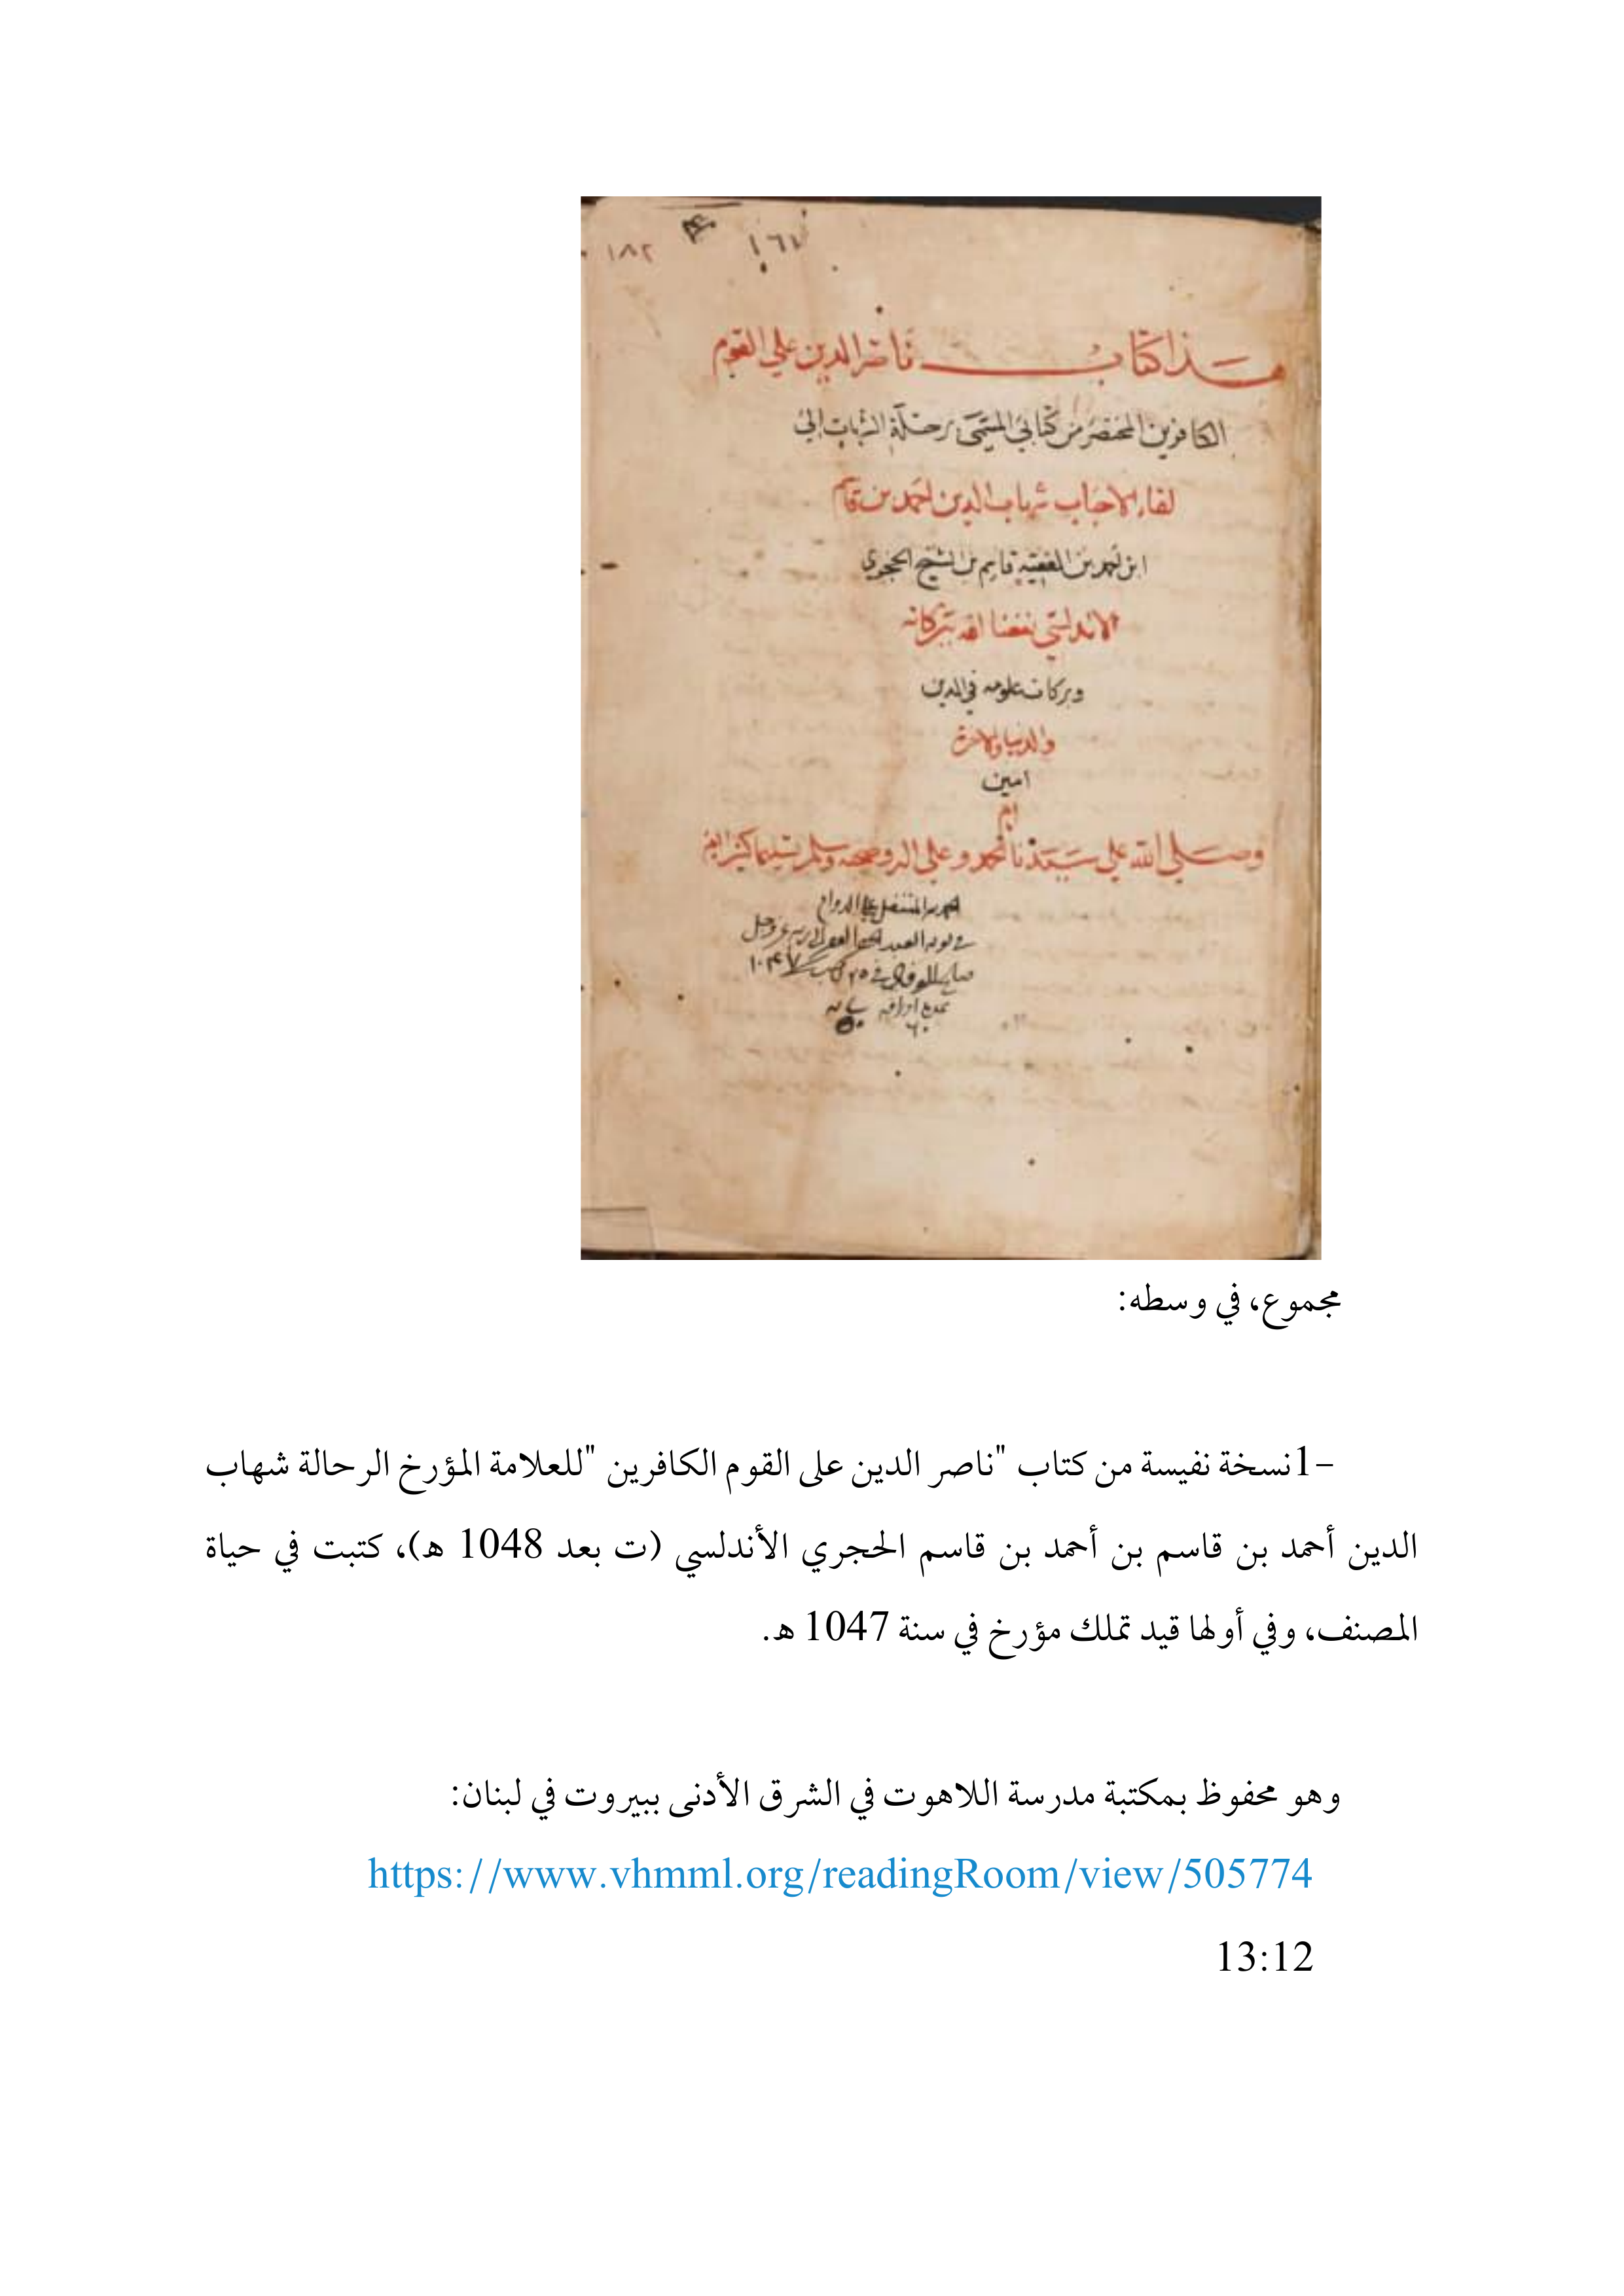 ١٨٢
١٦١
هذا كتاب ناصر الدين علي القوم
الكافرين المختصر من كتابي المسمى برحلة الشهاب إلى
لقاء الاحباب شهاب الدين احمد بن قاسم
ابن احمد بن الفقيه قاسم بن الشيخ الحجري
الاندلسي نفعنا الله ببركاته
وبركات علومه في الدين
والدنيا والاخرة
امين
ام
وصلي الله علي سيدنا محمد وعلي اله وصحبه وسلم تسليما كثيرا
نوبه العبد الفقير الى ربه عز وجل
في ٢٥ ١٠٤٧
اوراقه
٦٠
مجموع، في وسطه:
1-نسخة نفيسة من كتاب "ناصر الدين على القوم الكافرين "للعلامة المؤرخ الرحالة شهاب
الدين أحمد بن قاسم بن أحمد بن قاسم الحجري الأندلسي (ت بعد 1048 ه)، كتبت في حياة
المصنف، وفي أولها قيد تملك مؤرخ في سنة 1047 ه.
وهو محفوظ بمكتبة مدرسة اللاهوت في الشرق الأدنى ببيروت في لبنان:
https://www.vhmml.org/readingRoom/view/505774
13:12